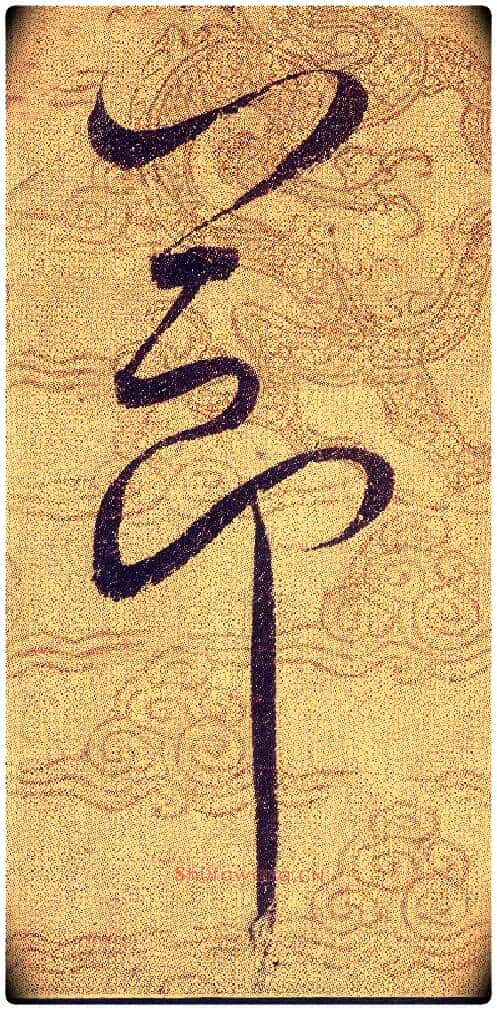 節
Shufawang.cn